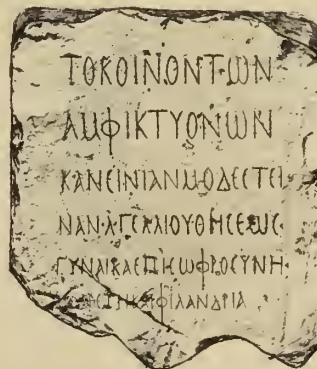 ΤΟΚΟΙΝΟΝΤΩΝ
ΑΜΦΙΚΤΥΟΝΩΝ
ΚΑΝΕΙΝΙΑΝΜΟΔΕϹΤΕΙ·
ΝΑΝ·ΑΓΕΛΛΙΟΥΘΗϹΕΩϹ·
ΓΥΝΑΙΚΑΕΠΙϹΩΦΡΟϹΥΝΗ·
ΦΙΛΑΝΔΡΙΑ